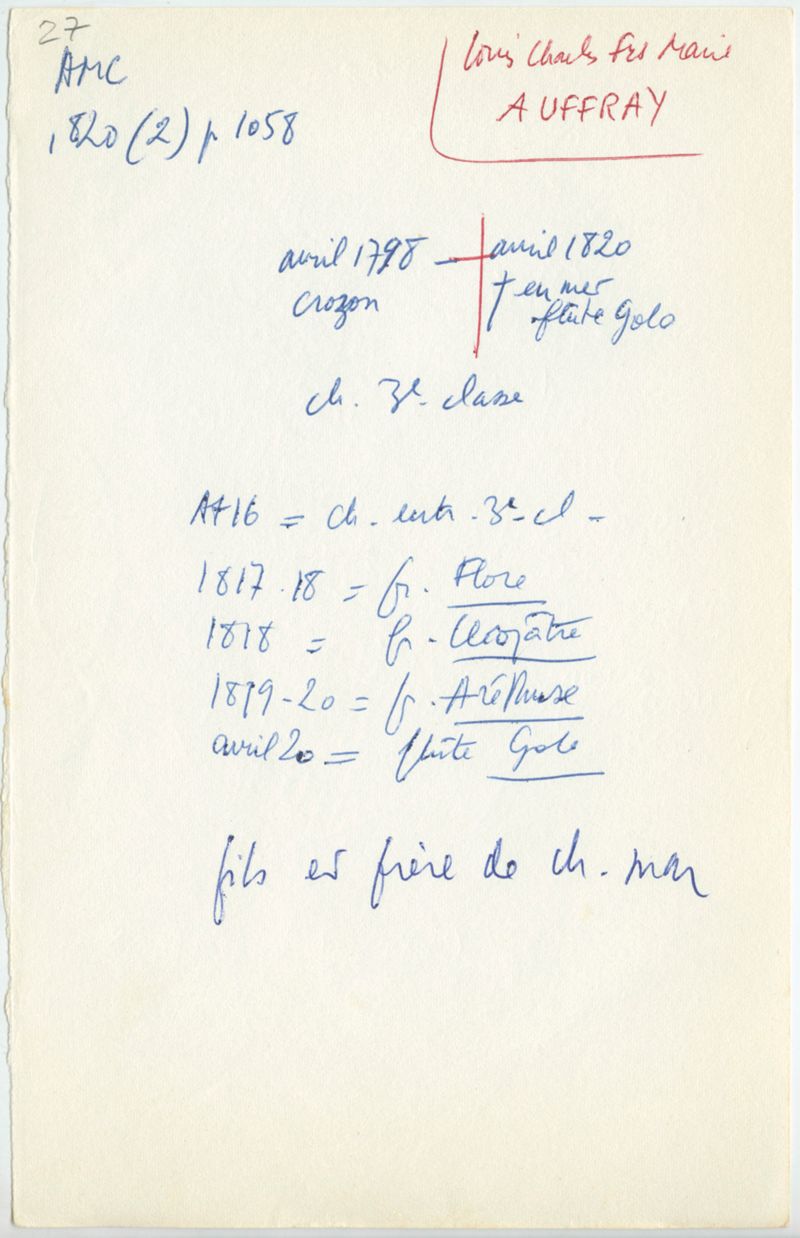 27
AMC
1820 (2) p 1058
Louis Charles Frs Marie
AUFFRAY
avril 1798 — avril 1820
Crozon
† en mer
flûte Golo
ch. 3e classe
At 16 = ch. entr. 3e cl -
1817.18 = fr. Flore
1818 = fr. Cléopâtre
1819-20 = fr. Aréthuse
avril 20 = flûte Golo
fils et frère de ch. mar